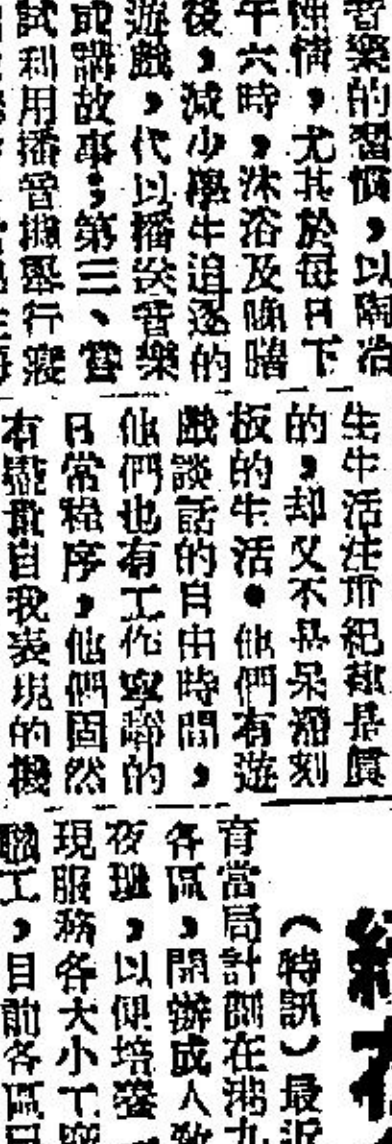 音樂的習慣，以陶冶
性情，尤其於每日下
午六時，沐浴及晚膳
後，減少學生追逐的
遊戲，代以播送音樂
或講故事；第三、嘗
試利用播音機舉行
生生活在市紀律是
的，却又不是呆刻
板的生活。他們有遊
戲談話的自由時間，
他們也有工作的
日常程序，他們固然
有盡量自我表現的機
（特訊）最近
育當局計劃在港九
各區，開辦成人教
夜班，以便培養
現服務各大小工廠
職工，目前各區